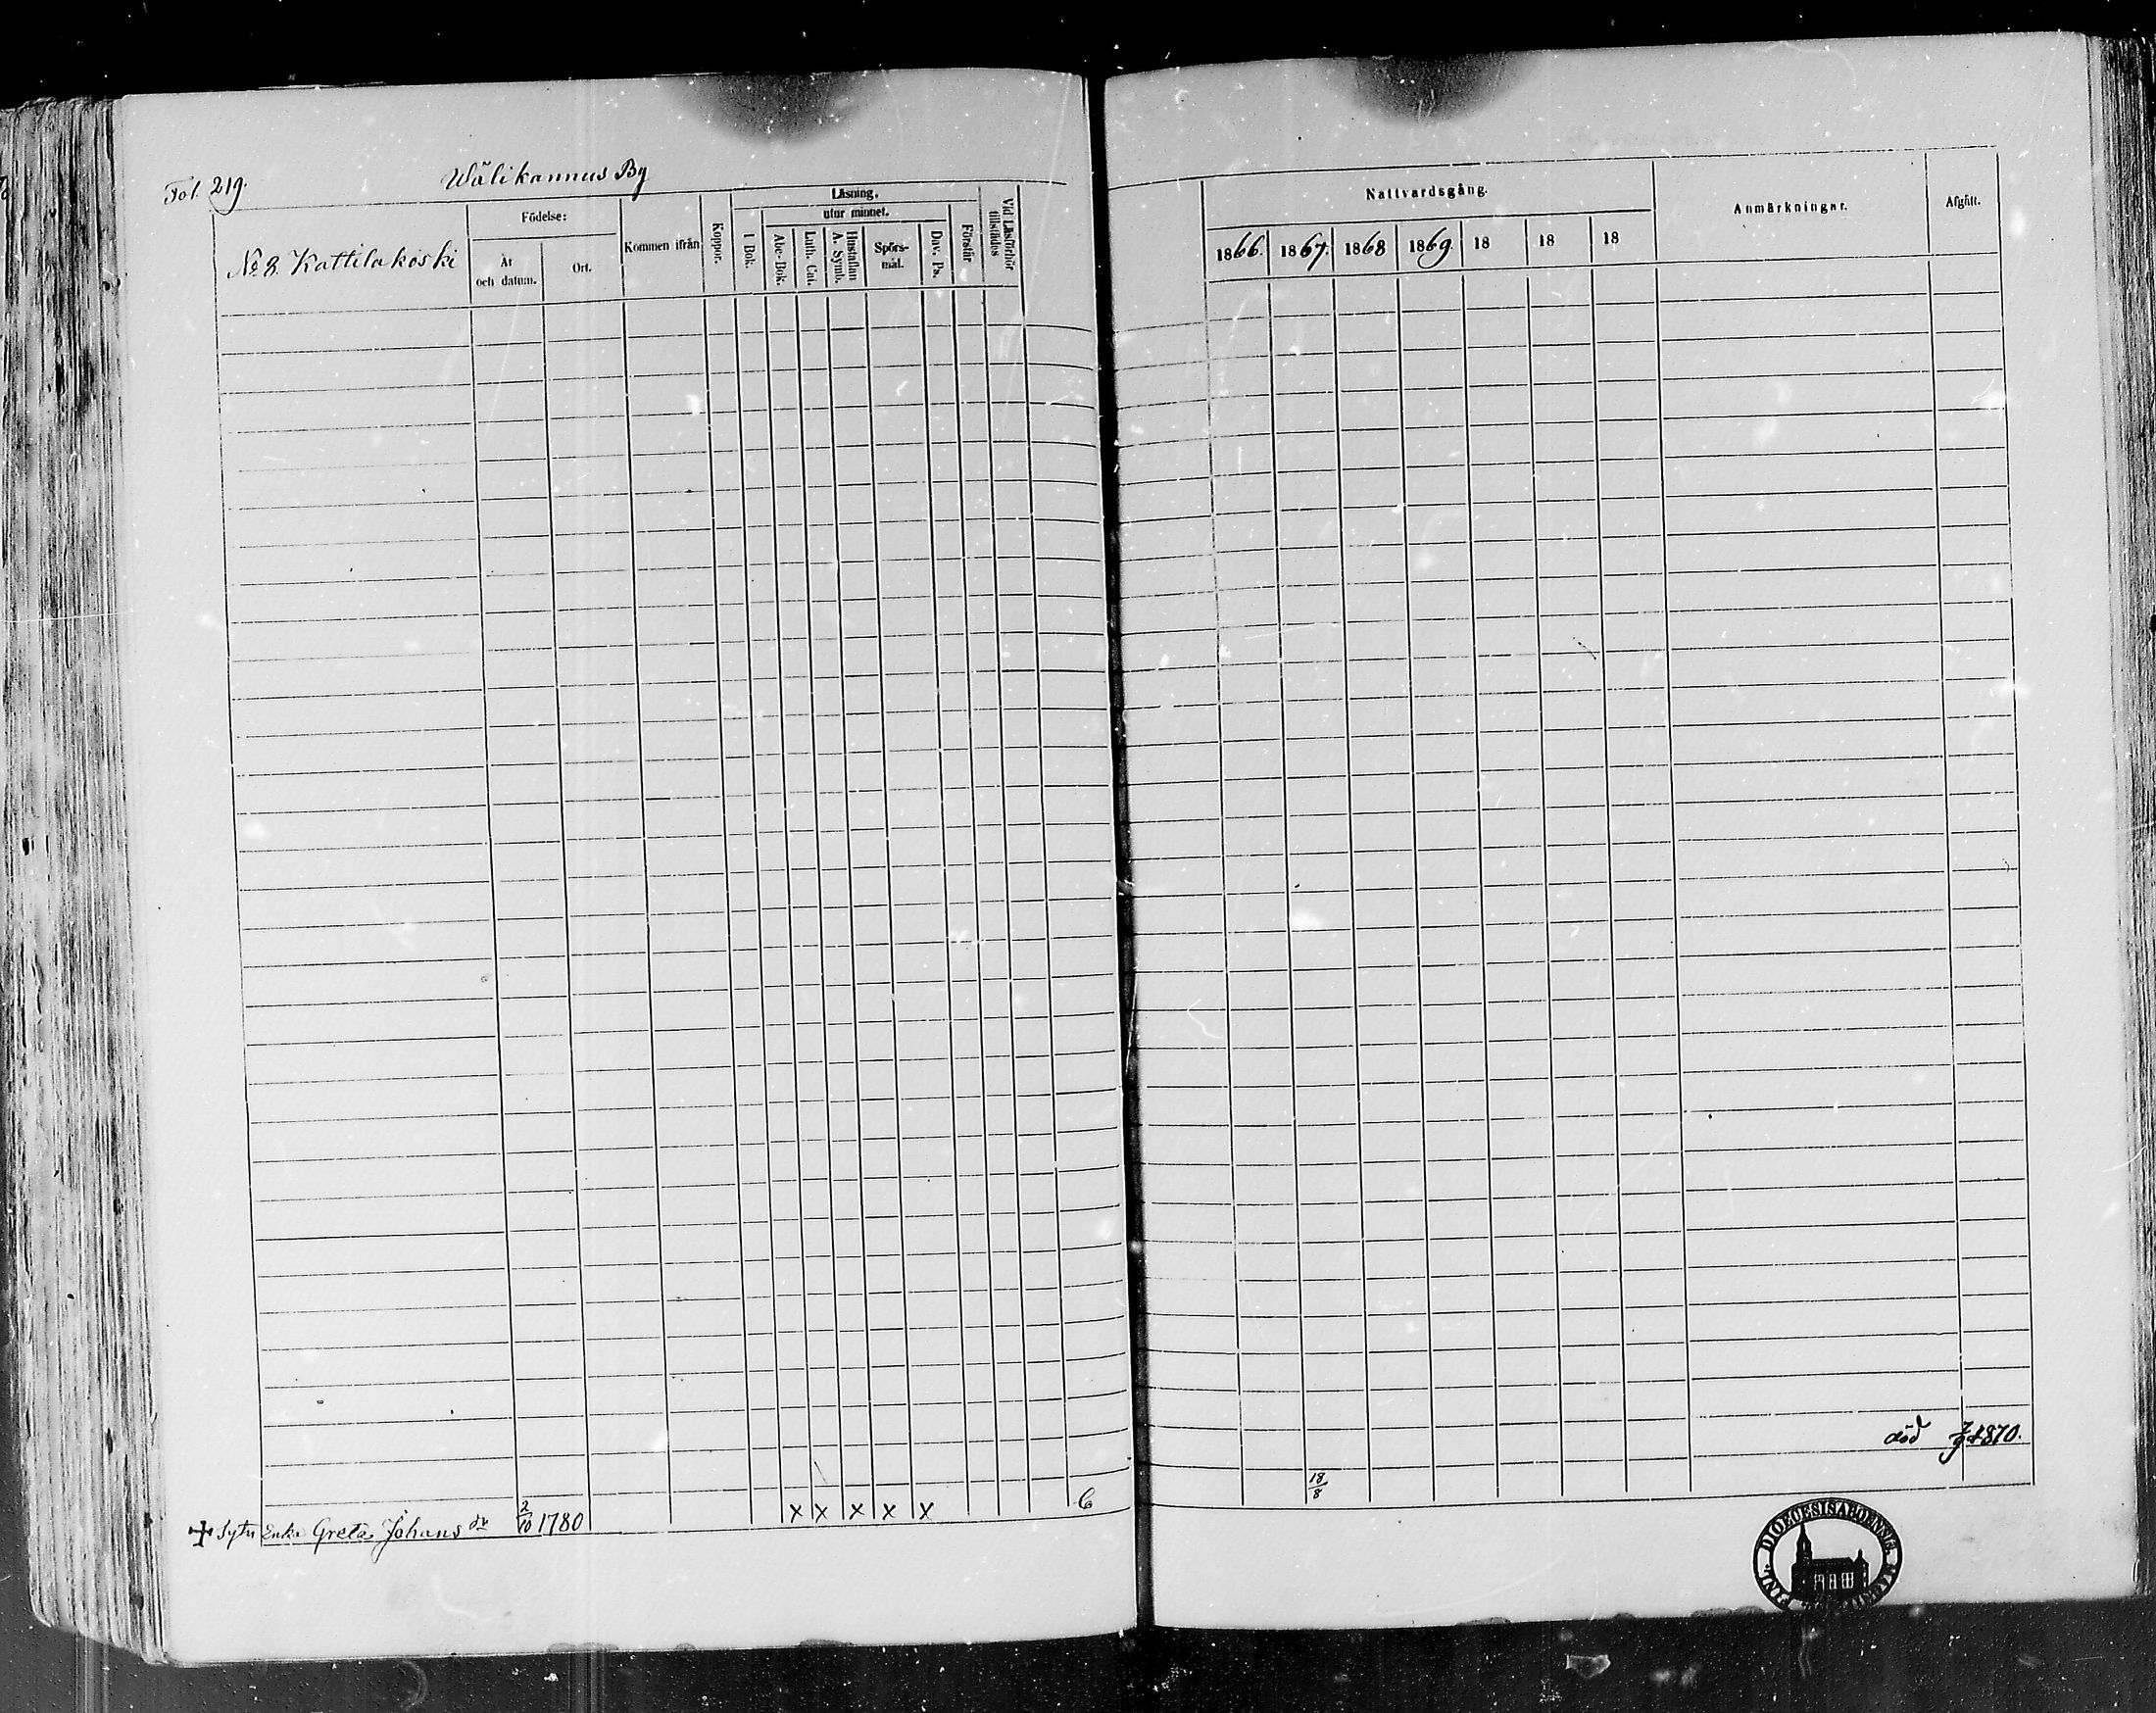 Fol. 219.
Wälikannus By
No 8. Kattilakoski
Födelse:
År och datum.
Ort.
Kommen ifrån
Koppor.
Läsning.
I Bok.
utur minnet.
Abc-Bok.
Luth. Cat.
Hustaflan A. Symb.
Spörs-mål.
Dav. Ps.
Förstår
Vid Läsförhör tillstädes
Nattvardsgång.
1866. 1867. 1868 1869. 18 18 18
Anmärkningar.
Afgått.
död 7/9 1870.
Sytn Enka Greta Johans dr 2/10 1780 x x x x x 6 18/8
FINL. DIOECESIS ABOENSIS